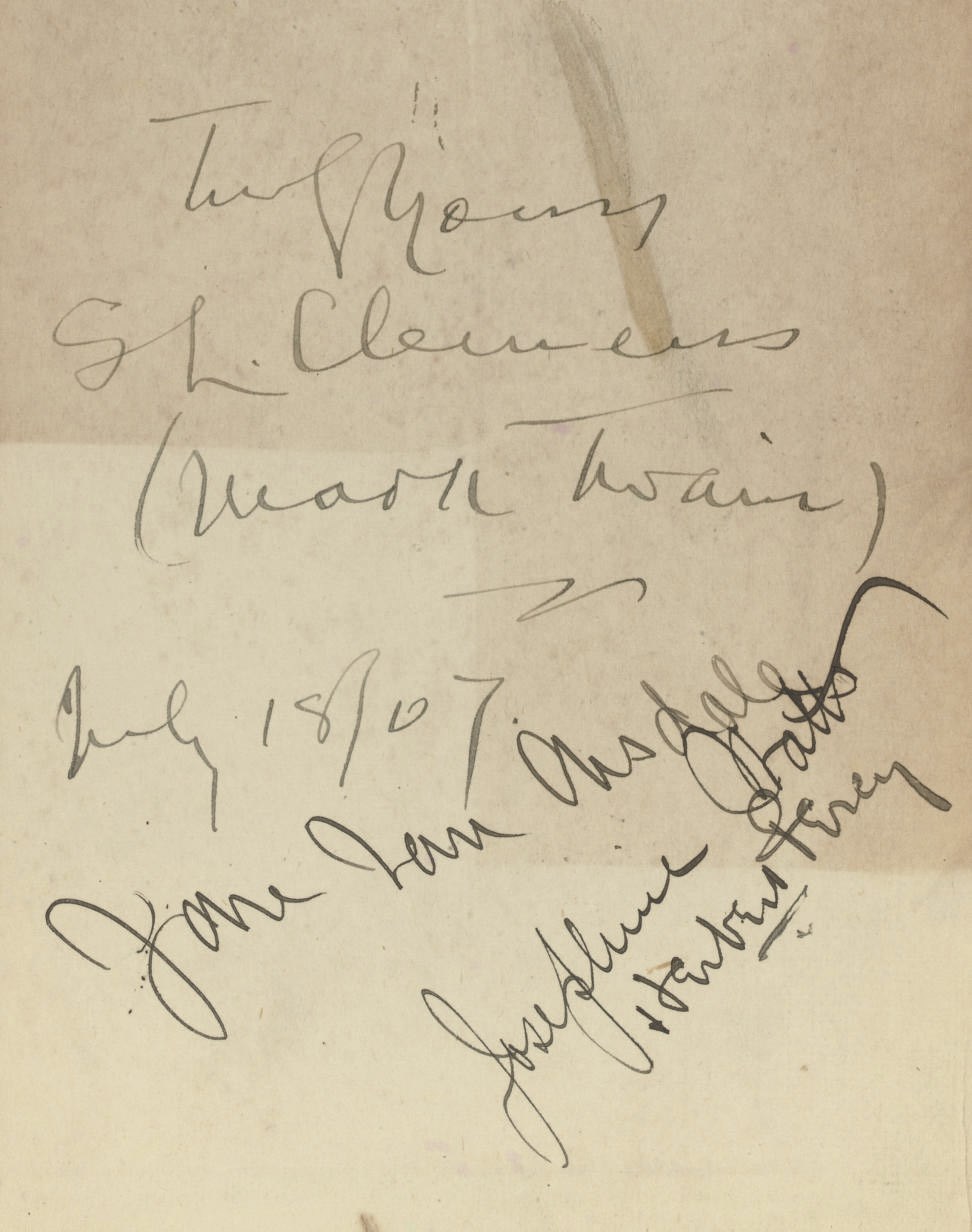 Truly Yours
S L. Clemens
(Mark Twain)
July 18/07.
Jane Van Arsdale
Josephine Watts
Herbert Percy